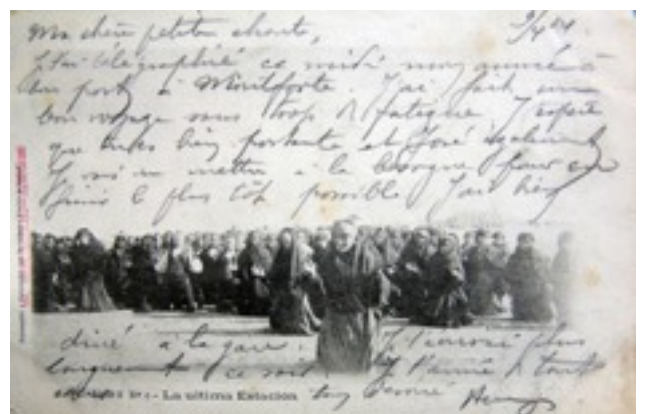 Ma chère petite
9/4 04
télégraphié ce midi mon arrivée à
bon port à Montforte. J'ai fait un
bon voyage sans trop de fatigue. J'espère
que tu es bien portante et José également
Je vais me mettre à la besogne pour en
finir le plus tôt possible J'ai bien
dîné à la gare. Je t'écrirai plus
longuement ce soir.
La ultima Estacion